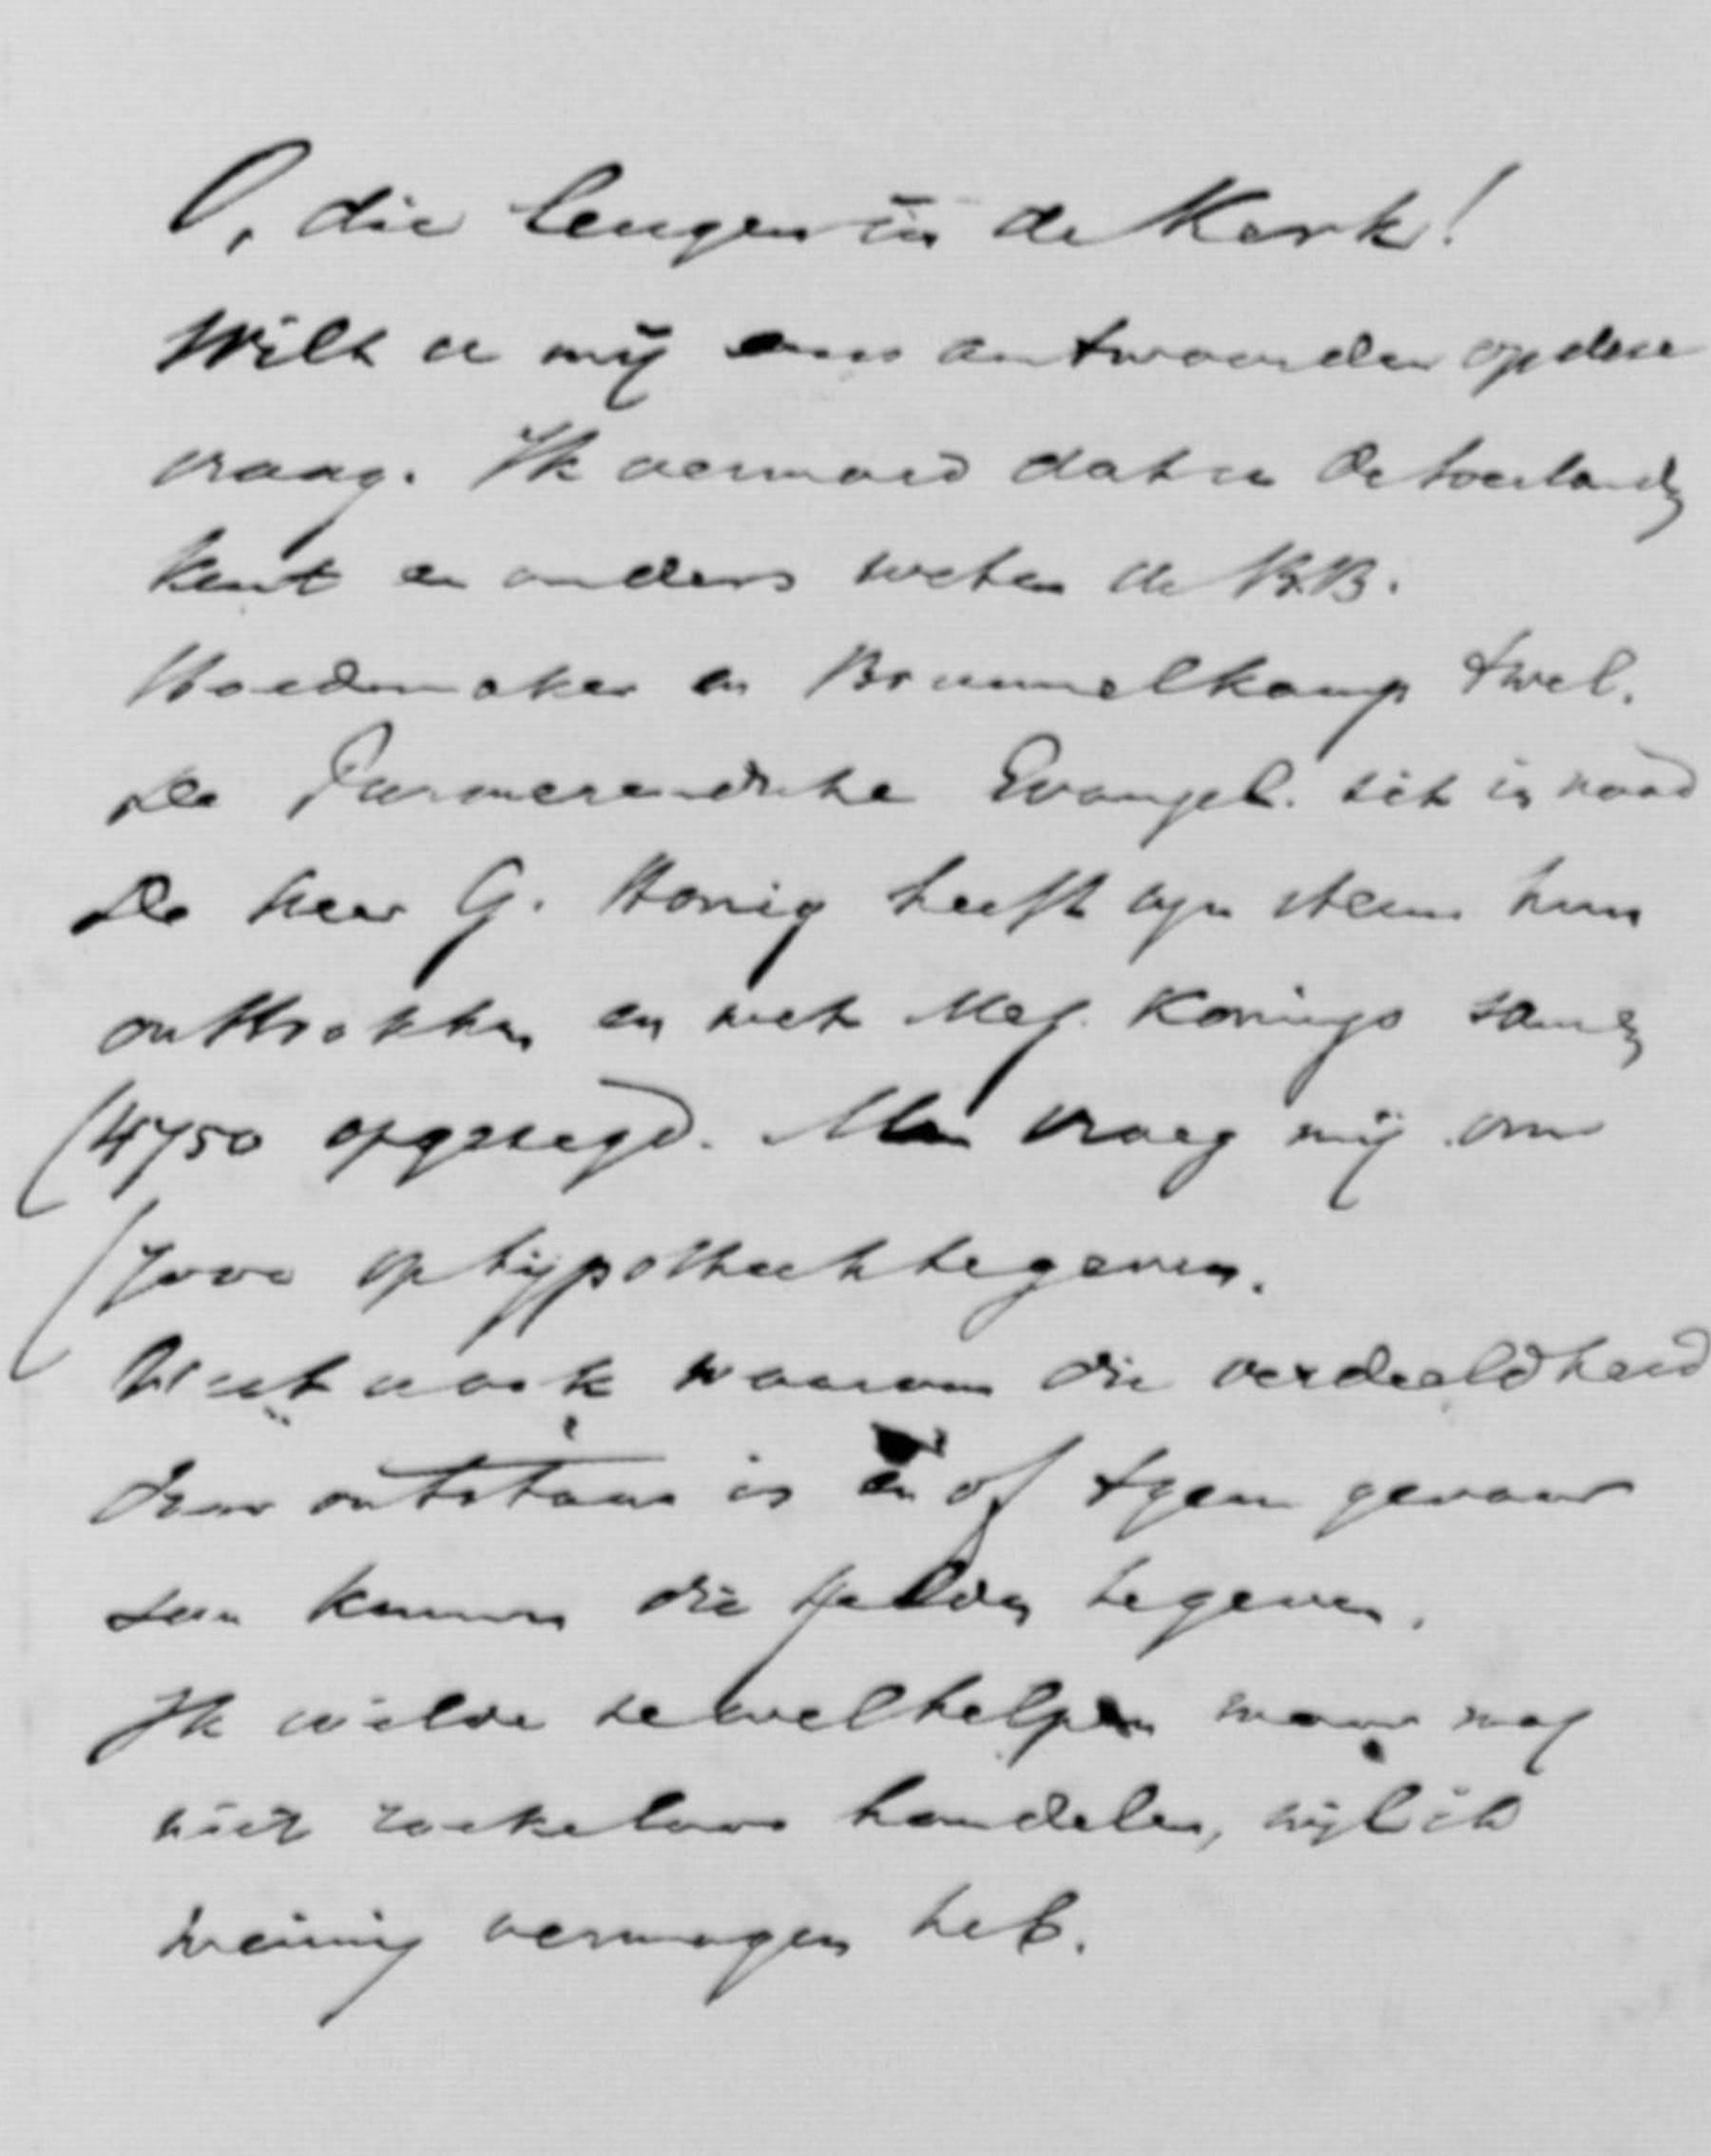 O, die leugen in de Kerk!
Wilt u mij eens antwoorden op deze
vraag. Ik vermoed dat u de toestand
kent en anders weten de BB.
Hoedemaker en Brummelkamp 't wel.
De Purmerendsche Evangel. zit in nood
De heer G. Honig heeft zijn steun hun
onttrokken en met Mej. Konings samen
f 4750 opgezegd. Men vraag mij om
f 7000 op hypotheek te geven.
Weet u ook waarom die verdeeldheid
daar ontstaan is en of 't geen gevaar
zou kunnen die gelden te geven.
Ik wilde ze wel helpen maar mag
niet roekeloos handelen, wijl ik
weinig vermogen heb.